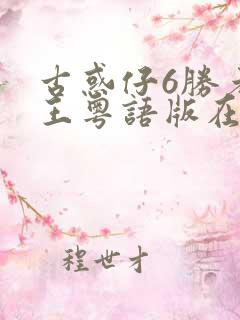 古惑仔6勝者
王粵語版在
程世才